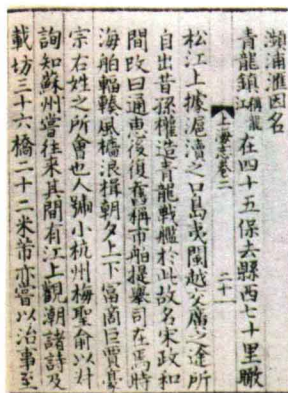 瀕浦滙因名
青龍鎮稱龍在四十五保去縣西七十里瞰
上海志卷二 二十一
松江上據滬瀆之口島夷閩越交廣之途所
自出昔孫權造青龍戰艦於此故名宋政和
間改曰通惠後復舊稱市舶提舉司在焉時
海舶輻輳風檣浪楫朝夕上下富商巨賈豪
宗右姓之所會也人號小杭州梅聖俞以
詢知蘇州嘗往來其間有江上觀潮諸詩及
載坊三十六橋二十二米芾亦嘗以治事至